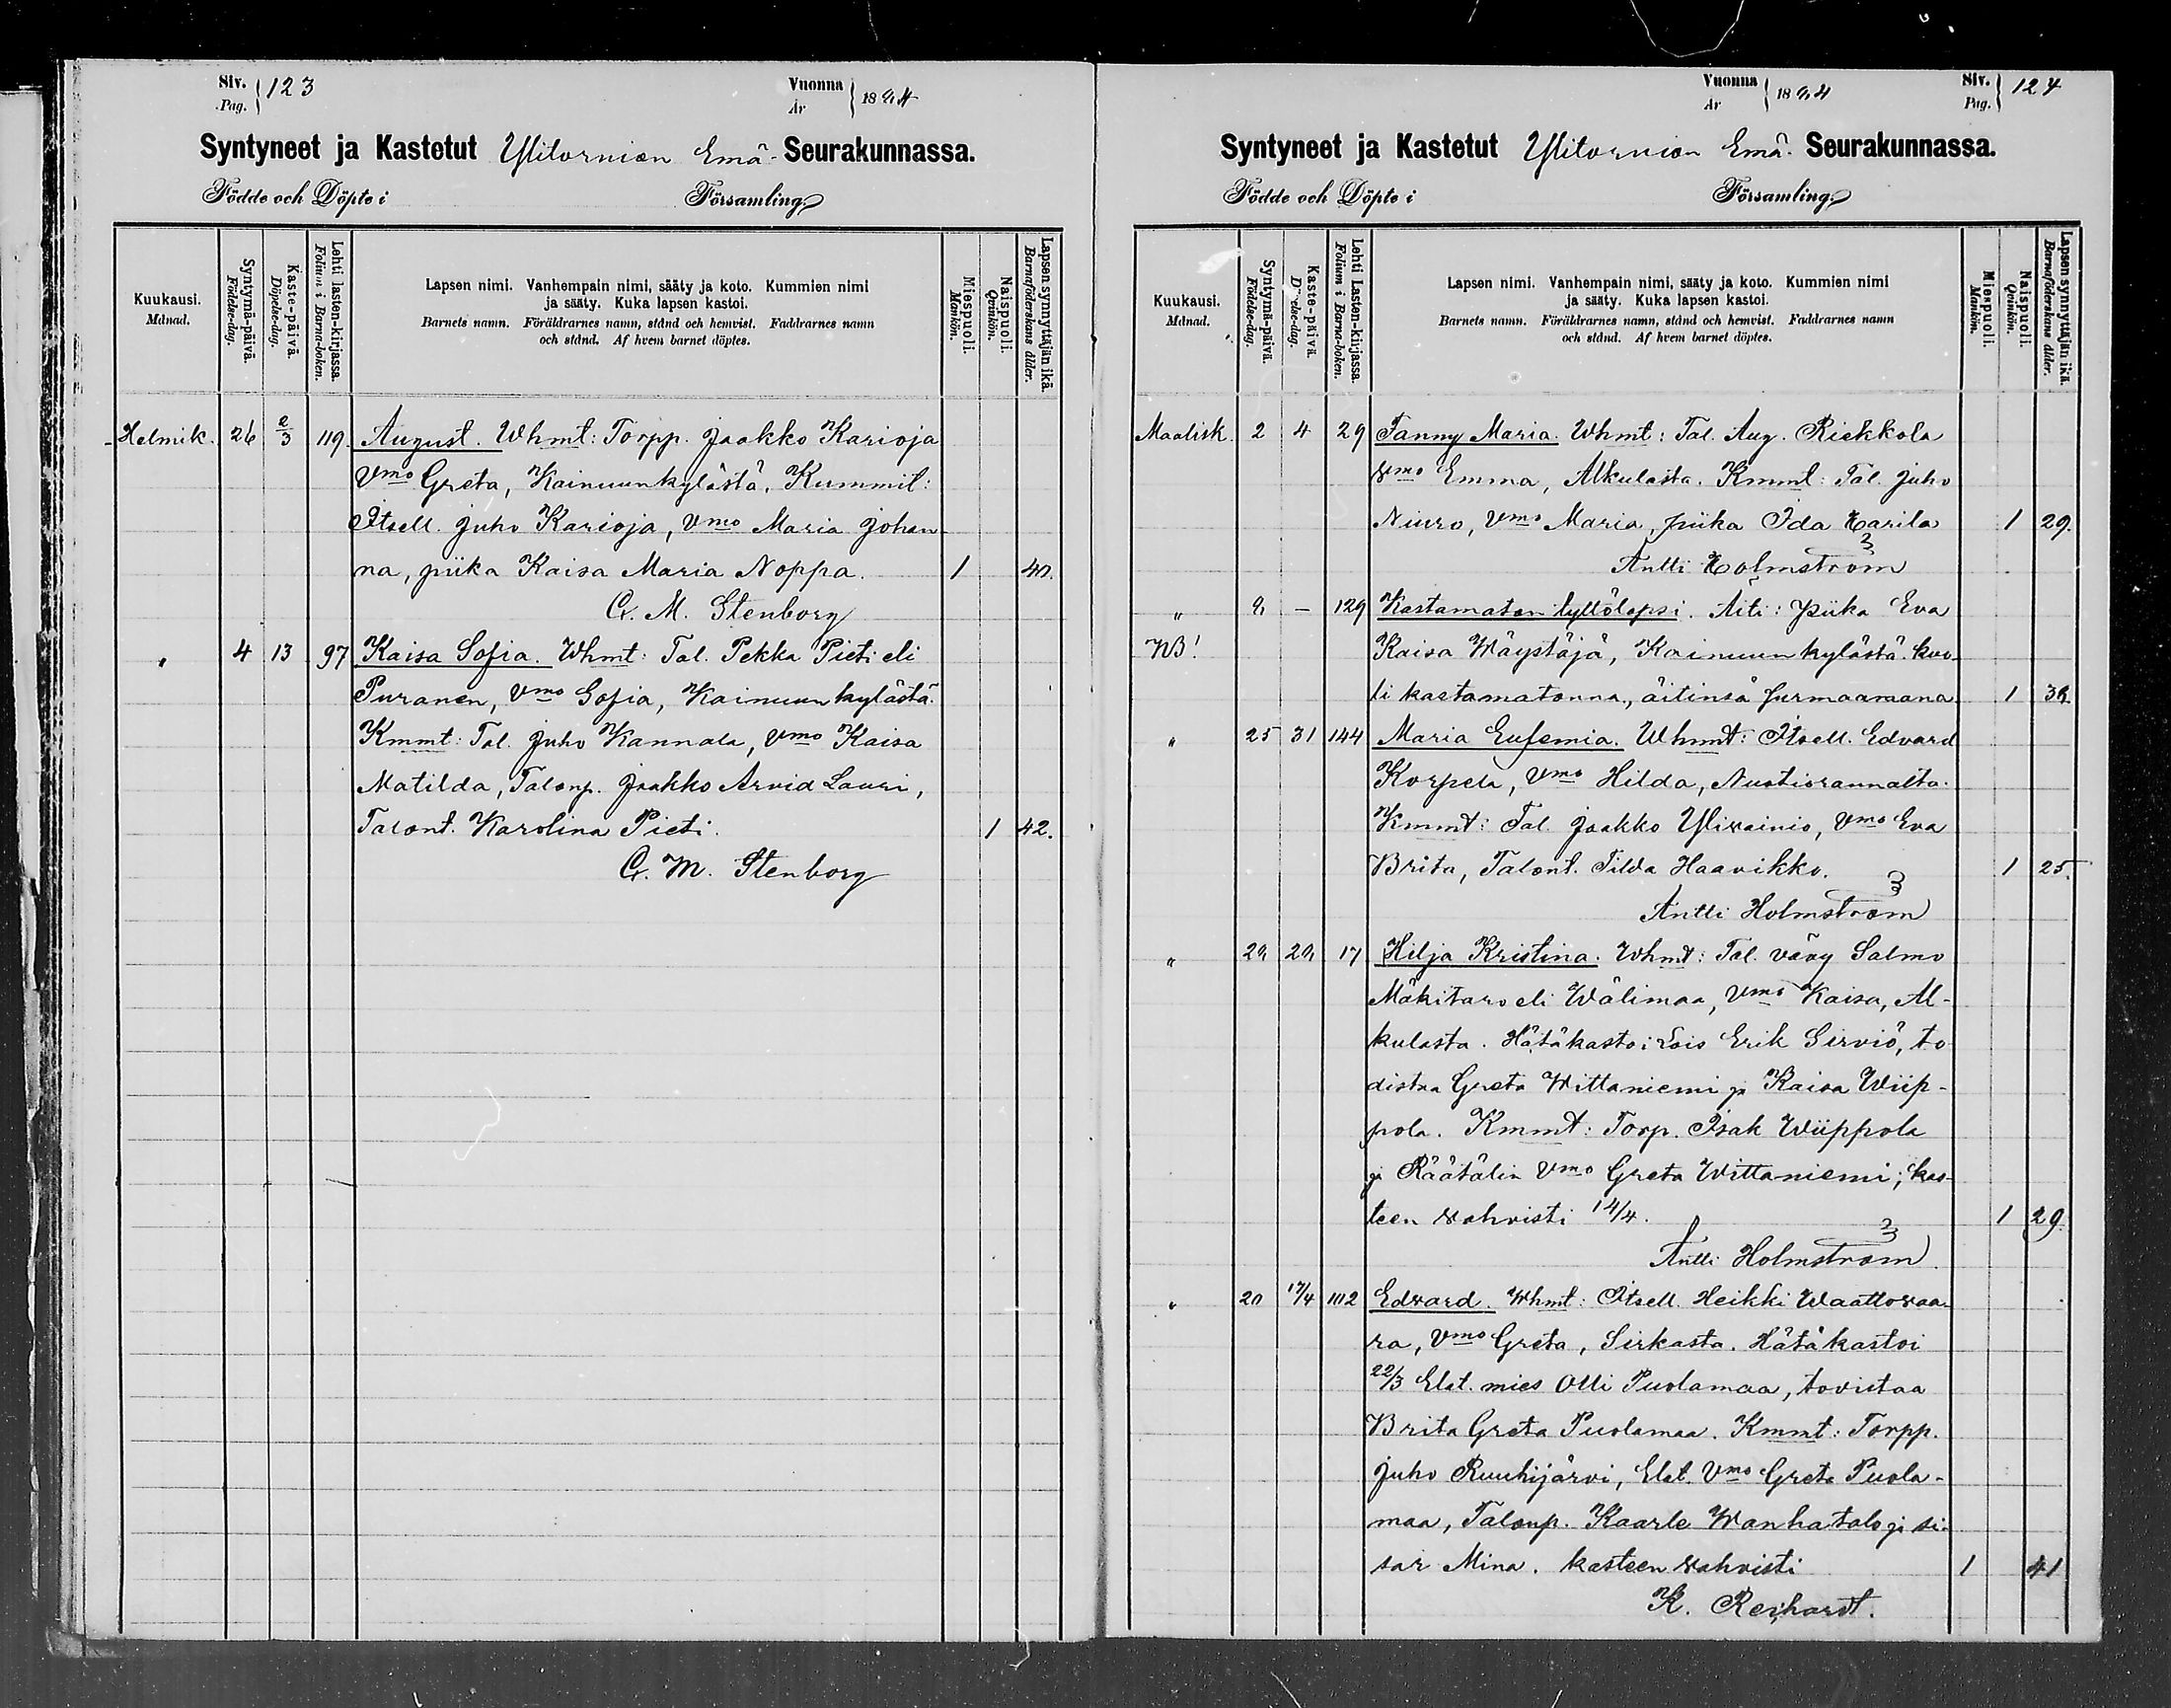 Siv. 123
Pag.
Vuonna 1894
År
Syntyneet ja Kastetut Ylitornion Emä- Seurakunnassa.
Födde och Döpte i Församling
Kuukausi. Månad.
Syntymä-päivä. Födelse-dag.
Kaste-päivä. Döpelse-dag.
Lehti lasten-kirjassa. Folium i Barna-boken.
Lapsen nimi. Vanhempain nimi, sääty ja koto. Kummien nimi
ja sääty. Kuka lapsen kastoi.
Barnets namn. Föräldrarnes namn, stånd och hemvist. Faddrarnes namn
och stånd. Af hvem barnet döptes.
Miespuoli. Mankön.
Naispuoli. Qvinkön.
Lapsen synnyttäjän ikä. Barnaföderskans ålder.
Helmik. 26 2/3 119 August. Whmt: Torpp. Jaakko Karioja
Vmo Greta, Kainuunkylästä. Kummit:
Itsell. Juho Karioja, Vmo Maria Johan-
na, piika Kaisa Maria Noppa. 1 40.
C. M. Stenborg
" 4 13 97 Kaisa Sofia. Whmt: Tal. Pekka Pieti eli
Puranen, Vmo Sofia, Kainuunkylästä.
Kmmt: Tal. Juho Kannala, Vmo Kaisa
Matilda, Talonp. Jaakko Arvid Lauri,
Talont. Karolina Pieti. 1 42.
C. M. Stenborg
Vuonna 1894
År
Siv. 124
Pag.
Syntyneet ja Kastetut Ylitornion Emä- Seurakunnassa.
Födde och Döpte i Församling
Kuukausi. Månad.
Syntymä-päivä. Födelse-dag.
Kaste-päivä. D else-dag.
Lehti Lasten-kirjassa. Folium i Barna-boken.
Lapsen nimi. Vanhempain nimi, sääty ja koto. Kummien nimi
ja sääty. Kuka lapsen kastoi.
Barnets namn. Föräldrarnes namn, stånd och hemvist. Faddrarnes namn
och stånd. Af hvem barnet döptes.
Miespuoli. Mankön.
Naispuoli. Qvinkön.
Lapsen synnyttäjän ikä. Barnaföderskans ålder.
Maalisk. 2 4 29 Fanny Maria. Whmt: Tal. Aug. Riekkola
Vmo Emma, Alkulasta. Kmmt: Tal. Juho
Niuro, Vmo Maria, piika Ida Harila 1 29.
Antti Holmström
" 9 – 129 Kastamaton tyttölapsi. Äiti: piika Eva
NB! Kaisa Wäystäjä, Kainuunkylästä. kuo-
li kastamatonna, äitinsä surmaamana. 1
" 25 31 144 Maria Eufemia. Whmt: Itsell. Edvard
Korpela, Vmo Hilda, Nuotiorannalta.
Kmmt: Tal. Jaakko Yliwainio, Vmo Eva
Brita, Talont. Tilda Haavikko. 1 25.
Antti Holmström
" 29 29 17 Hilja Kristina. Whmt: Tal. vävy Salmo
Mäkitaro eli Wälimaa, Vmo Kaisa, Al-
kulasta. Hätäkastoi Lois Erik Sirviö, to
distaa Greta Wittaniemi ja Kaisa Wiip-
pola. Kmmt: Torp. Isak Wiippola
ja Räätälin Vmo Greta Wittaniemi; kas-
teen vahvisti 14/4. 1 29.
Antti Holmström
" 20 17/4 102 Edvard. Whmt: Itsell. Heikki Waattovaa-
ra, Vmo Greta, Sirkasta. Hätäkastoi
22/3 Elat. mies Olli Puolamaa, todistaa
Brita Greta Puolamaa. Kmmt: Torpp.
Juho Ruuhijärvi, Elat. Vmo Greta Puola-
maa, Talonp. Kaarle Wanhatalo ja si-
sar Mina. kasteen vahvisti 1 41
K. Reihardt.